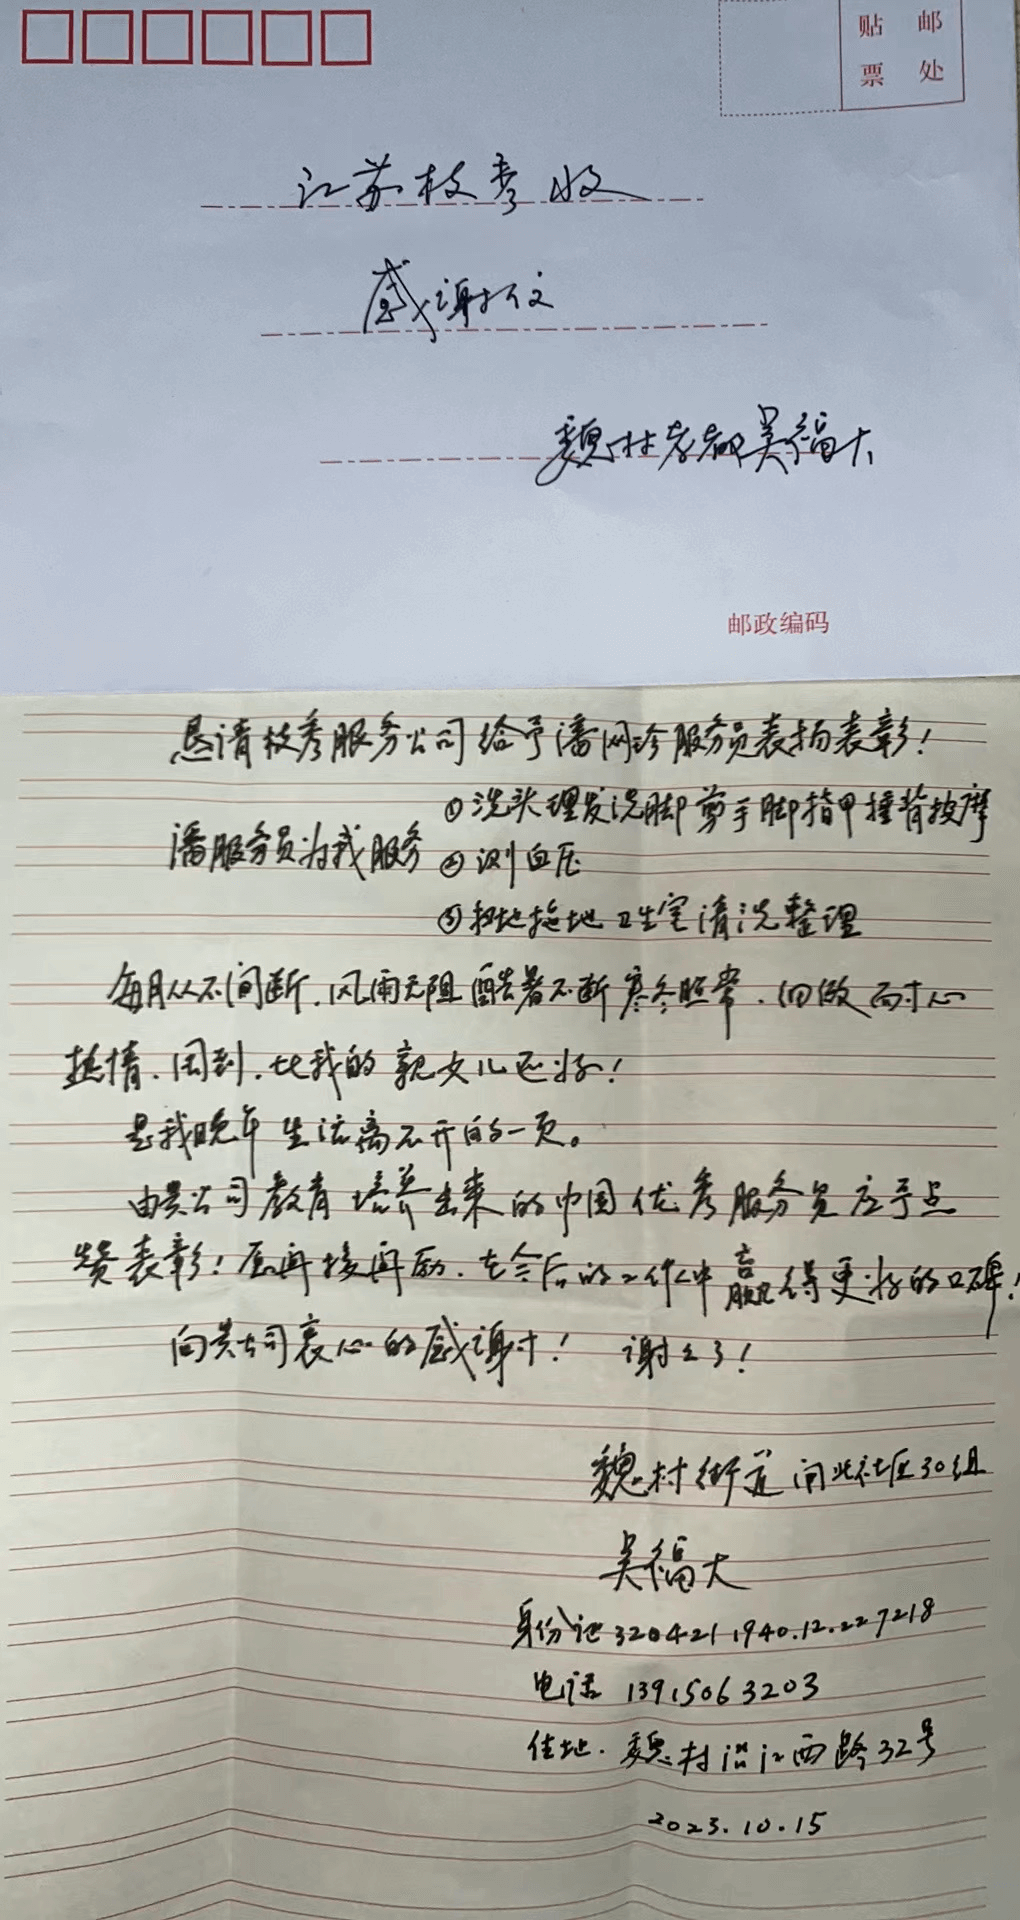 贴 邮
票 处
江苏枝秀收
感谢信
魏村老郎吴福大
邮政编码
恳请枝秀服务公司给予潘网珍服务员表扬表彰!
①洗头理发洗脚剪手脚指甲捶背按摩
潘服务员为我服务 ②测血压
③扫地拖地卫生室清洗整理
每月从不间断.风雨无阻酷暑不断寒冬照常.细做耐心
热情、周到.比我的亲女儿还好!
是我晚年生活离不开的一页。
由贵公司教育培养出来的中国优秀服务员应予点
赞表彰!愿再接再励.在今后的工作中赢得更好的口碑!
向贵公司衷心的感谢!谢谢了!
魏村街道闸北社区30组
吴福大
身份证 320421 1940.12.22 7218
电话 13915063203
住地.魏村沿江西路32号
2023.10.15